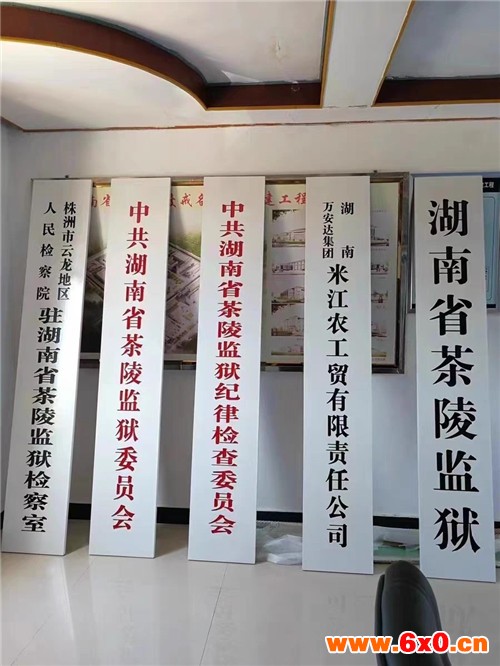 株洲市云龙地区
人民检察院
驻湖南省茶陵监狱检察室
中共湖南省茶陵监狱委员会
中共湖南省茶陵监狱纪律检查委员会
湖南
万安达集团
米江农工贸有限责任公司
湖南省茶陵监狱
www.6x0.cn